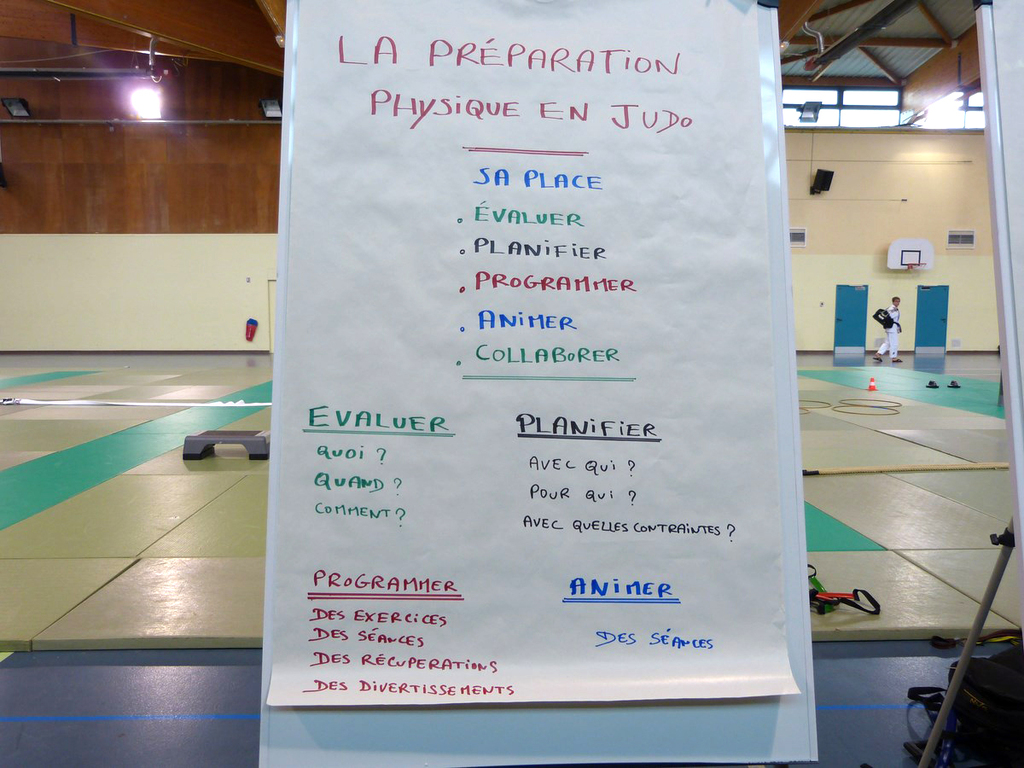 LA PRÉPARATION
PHYSIQUE EN JUDO
SA PLACE
. ÉVALUER
. PLANIFIER
. PROGRAMMER
. ANIMER
. COLLABORER
EVALUER
QUOI ?
QUAND ?
COMMENT ?
PLANIFIER
AVEC QUI ?
POUR QUI ?
AVEC QUELLES CONTRAINTES ?
PROGRAMMER
DES EXERCICES
DES SÉANCES
DES RÉCUPERATIONS
DES DIVERTISSEMENTS
ANIMER
DES SÉANCES